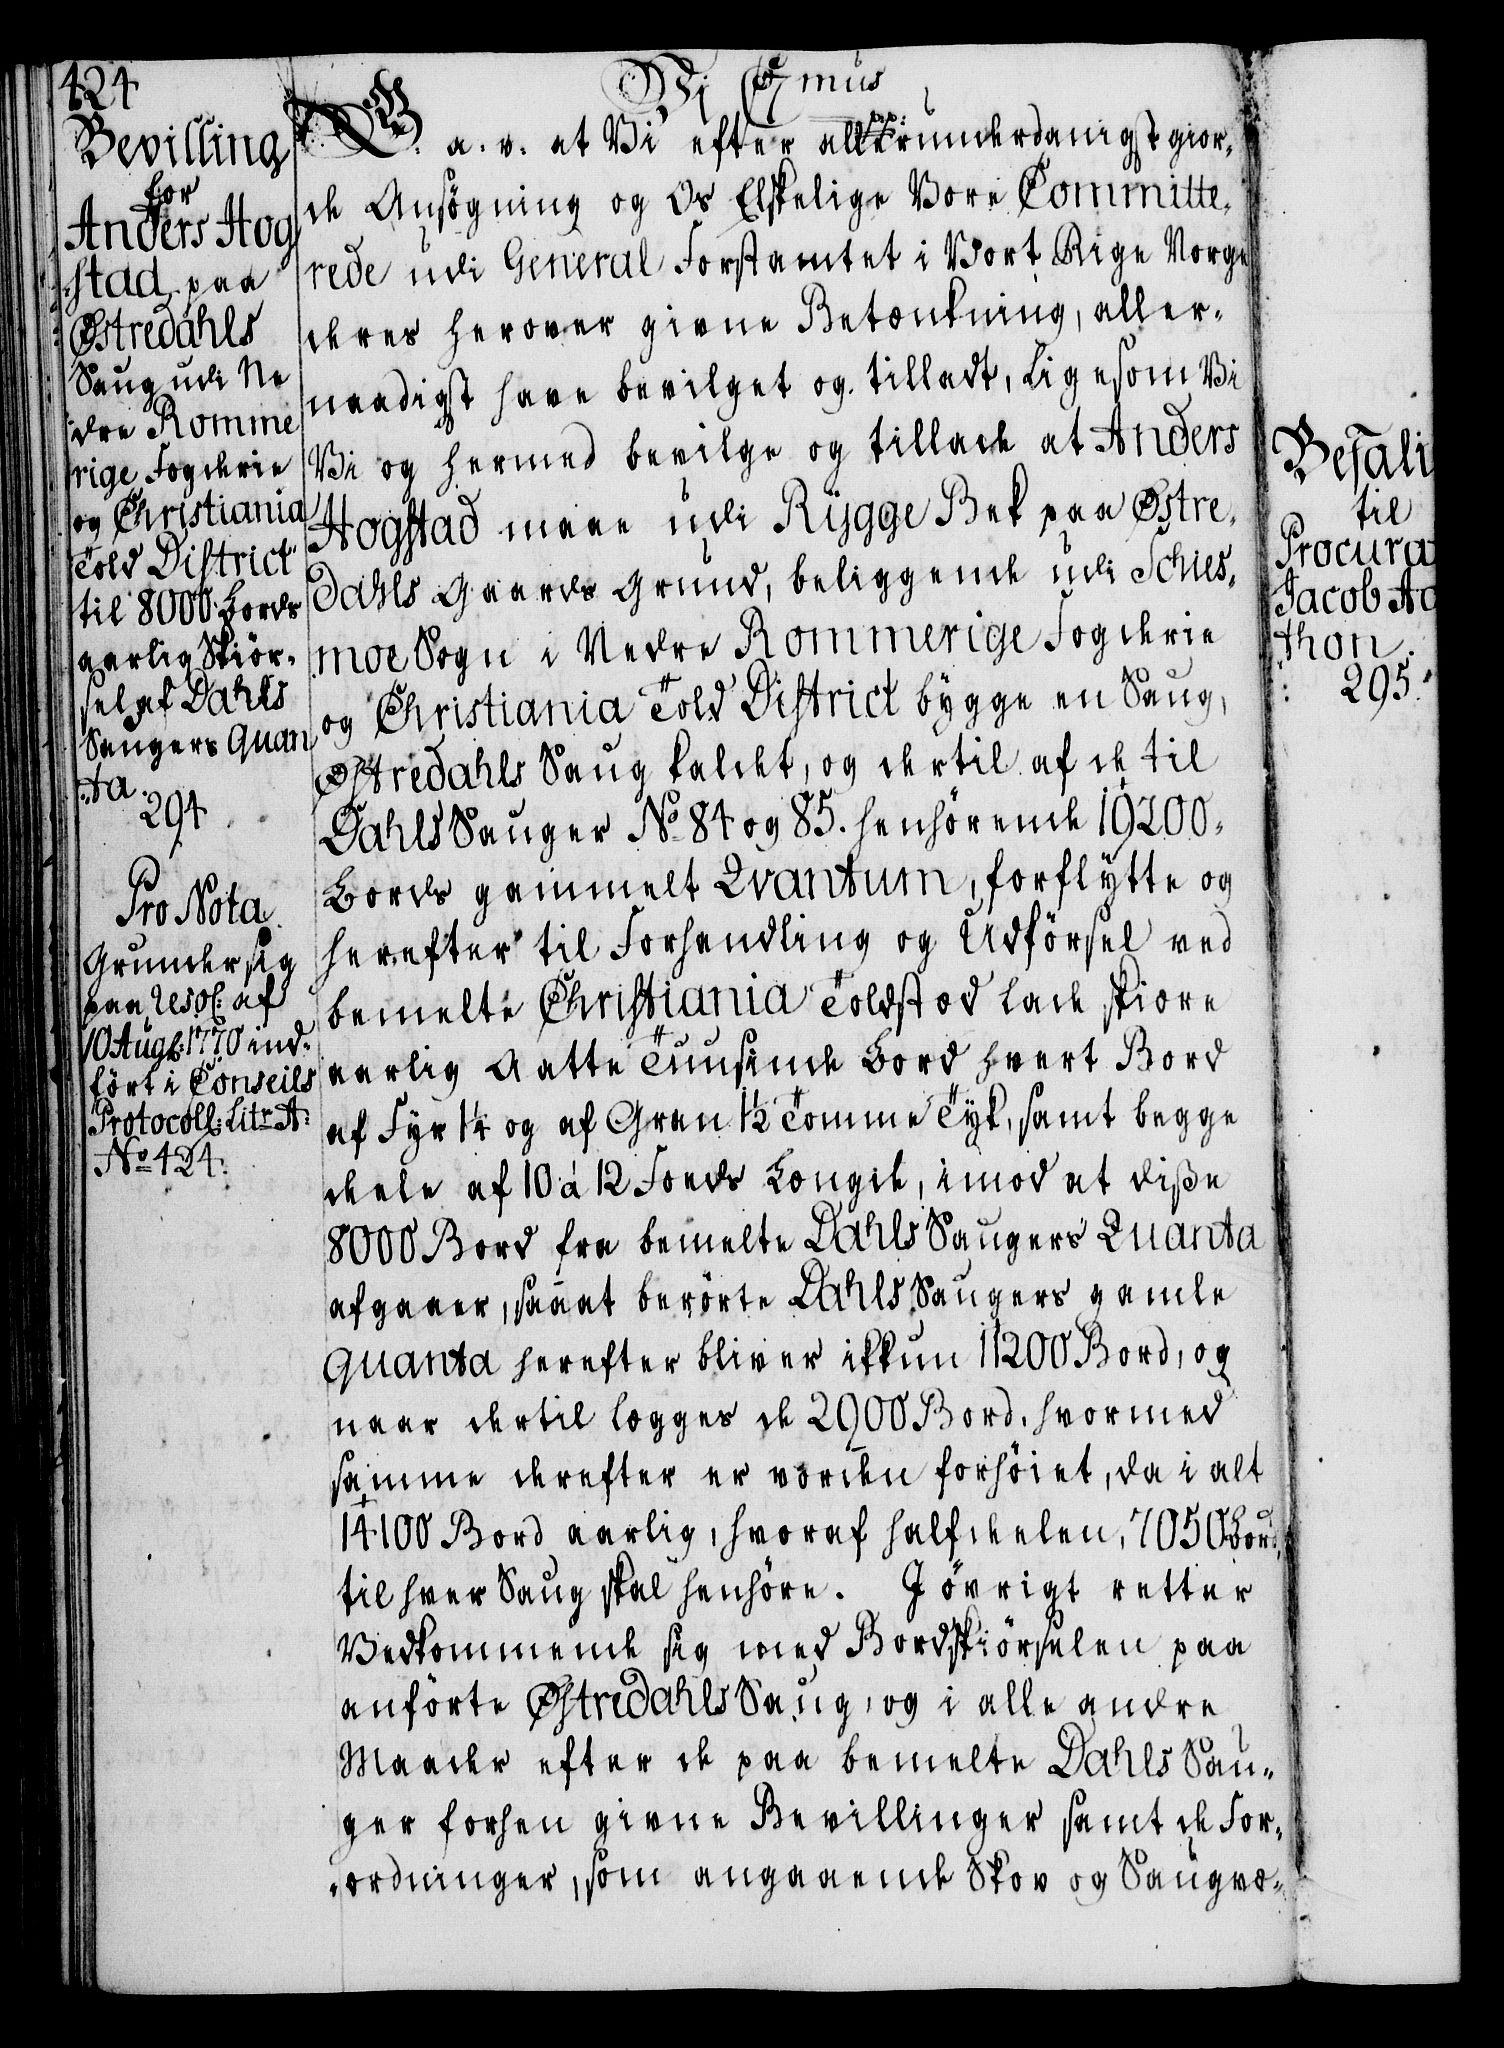 424
Bevilling
for
Anders Hog
stad paa
Østredahls
Saug udi Ne
dre Romme
rige Fogderie
og Christiania
Told District
til 8000 Bords
aarlig Skiör-
sel af Dahls
Saugers Quan
ta.
294
Pro Nota
Grunder sig
paa Resol: af
10 Aug: 1770 ind-
fört i Conseils
Protocoll: Litr A:
No 424.
Vi C 7mus
p.p:
G. a. v. at Vi efter allerunderdanigst gior-
de Ansögning og Os Elskelige Vore Committe-
rede udi General Forstamtet i Vort Rige Norge
deres herover givne Betænkning, aller-
naadigst have bevilget og tilladt, ligesom Vi
Vi og hermed bevilge og tillade at Anders
Hogstad maae udi Rygge Bek paa Østre-
dahls Gaards Grund, beliggende udi Schies-
moe Sogn i Nedre Rommerige Fogderie
og Christiania Told District bygge en Saug,
Østredahls Saug kaldet, og dertil af de til
Dahls Sauger No 84 og 85. henhörende 19200-
Bords gammelt Qvantum, forflytte og
herefter til Forhandling og Udförsel ved
bemelte Christiania Toldstæd lade skiære
aarlig Aatte Tuusinde Bord hvert Bord
af Fyr 1¼ og af Gran 1½ Tomme Tyk, samt begge
dele af 10 à 12 Foeds Længde, imod at diße
8000 Bord fra bemelte Dahls Saugers Quanta
afgaaer, saaat berörte Dahls Saugers gamle
Quanta herefter bliver ikkun 11200 Bord, og
naar dertil lægges de 2900 Bord, hvormed
samme derefter er vorden forhöiet, da i alt
14100 Bord aarlig, hvoraf halfdelen, 7050 Bord,
til hver Saug skal henhöre. I övrigt retter
Vedkommende sig med Bordskiörselen paa
anförte Østredahls Saug, og i alle andre
Maader efter de paa bemelte Dahls Sau-
ger forhen givne Bevillinger samt de For-
ordninger, som angaaende Skov og Saugvæ-
Befali
til
Procura
Jacob Aa
thon.
295.